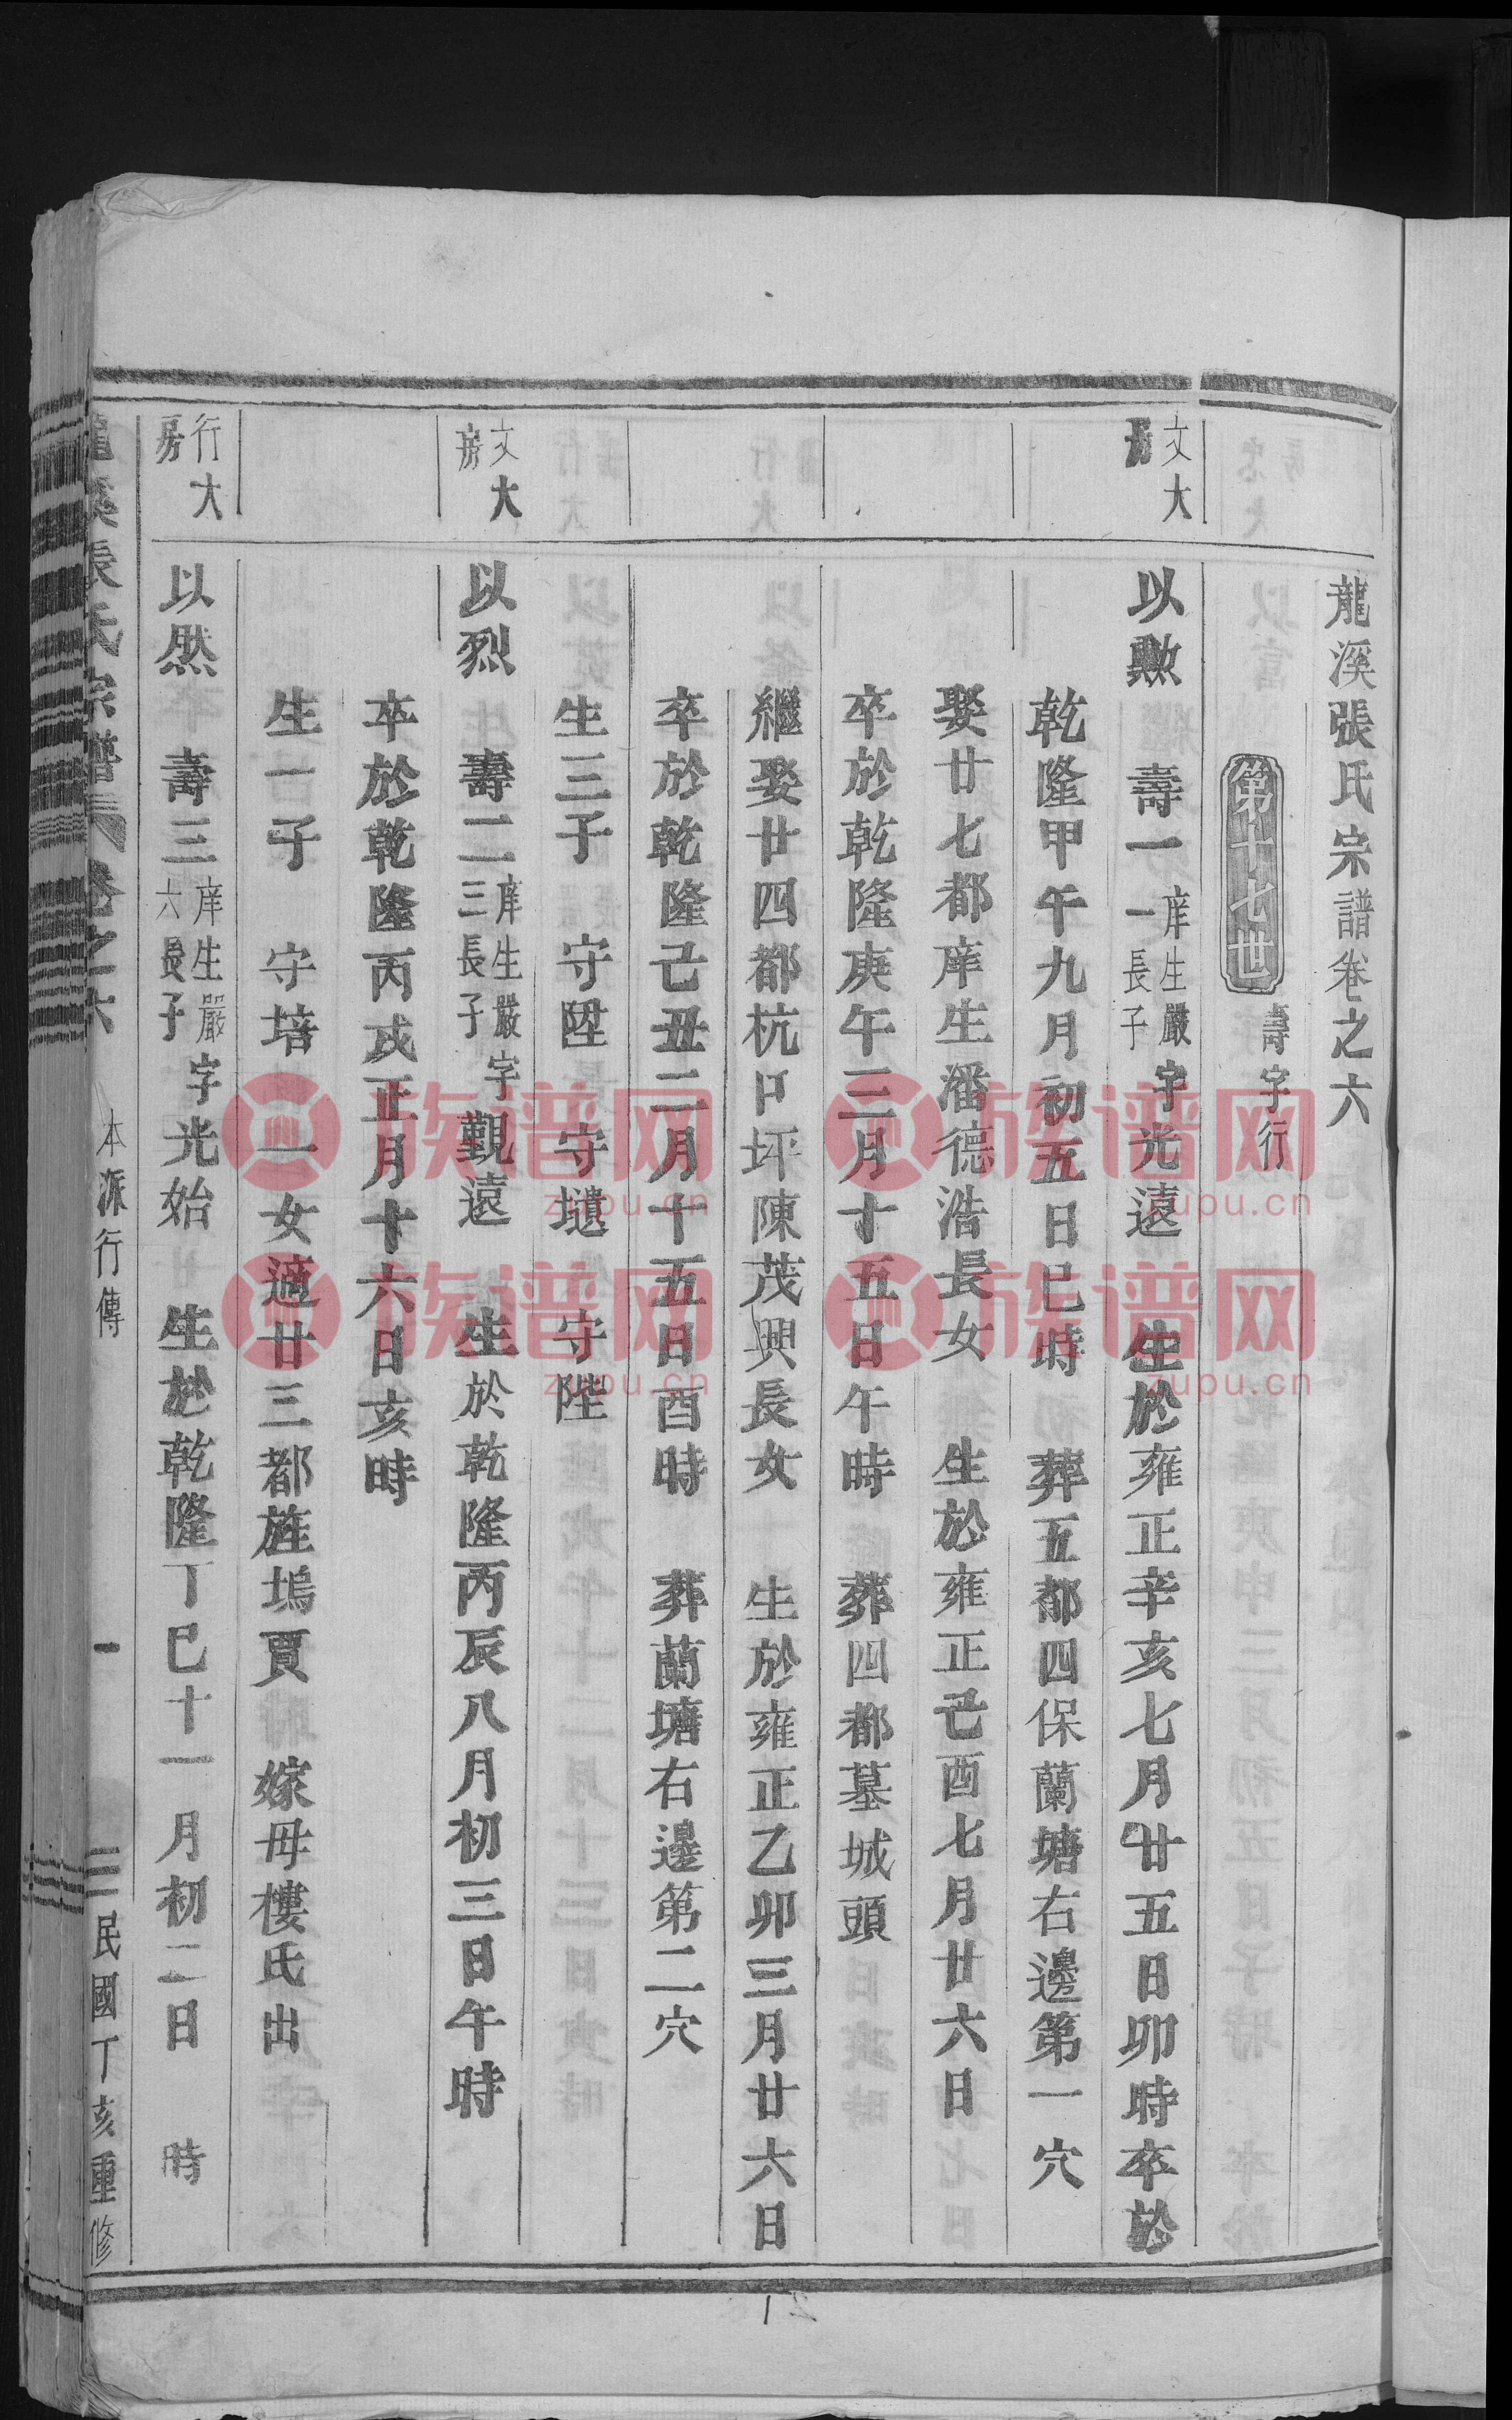 龍溪張氏宗譜卷之六
第十七世 壽字行
文大房
以勲 壽一 庠生嚴一一長子 字光遠 生於雍正辛亥七月廿五日卯時卒於
乾隆甲午九月初五日巳時 葬五都四保蘭塘右邊第一穴
娶廿七都庠生潘德浩長女 生於雍正己酉七月廿六日
卒於乾隆庚午三月十五日午時 葬四都墓城頭
繼娶廿四都杭口坪陳茂興長女 生於雍正乙卯三月廿六日
卒於乾隆己丑二月十五日酉時 葬蘭塘右邊第二穴
生三子 守陞 守壝 守陛
文大房
以烈 壽二 庠生嚴三長子 字觀遠 生於乾隆丙辰八月初三日午時
卒於乾隆丙戌正月十六日亥時
生一子 守培 一女適廿三都旌塢賈 嫁母樓氏出
行大房
以然 壽三 庠生嚴六長子 字光始 生於乾隆丁巳十一月初二日 時
龍溪張氏宗譜 卷之六 本派行傳 一 民國丁亥重修
1
族谱网
zupu.cn
族谱网
zupu.cn
族谱网
zupu.cn
族谱网
zupu.cn